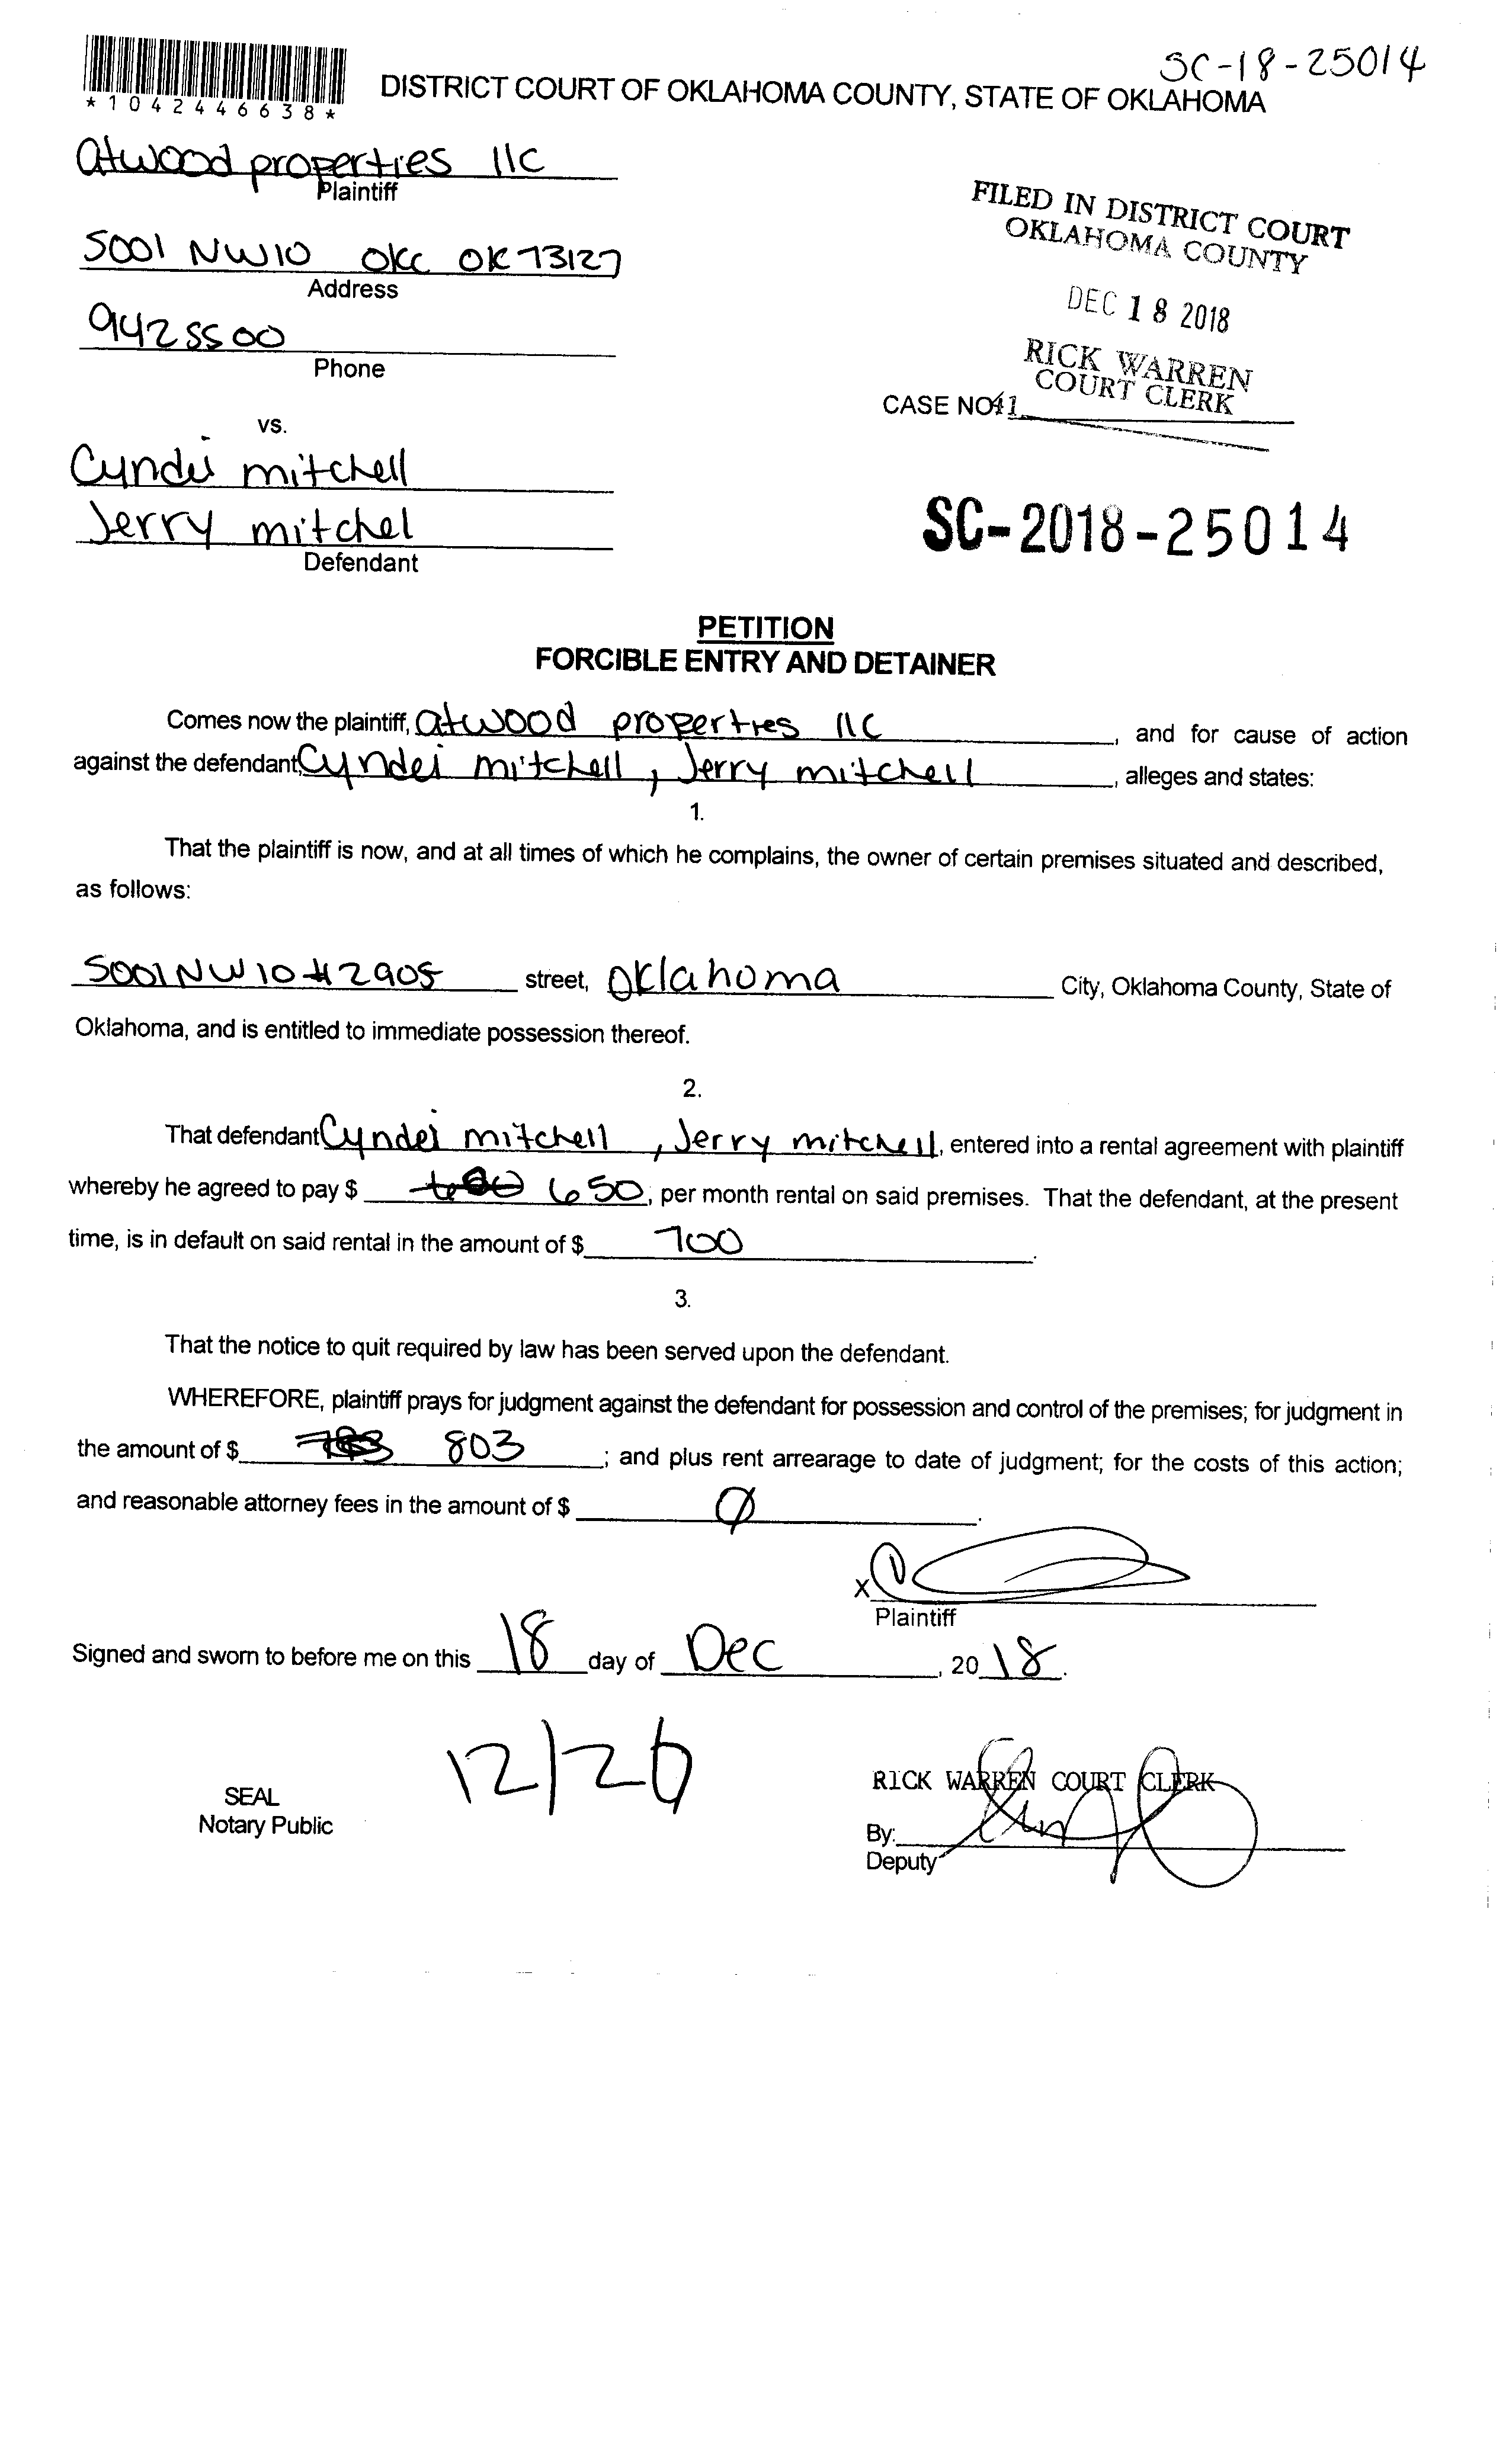 SC-18-25014
*1042446638*
DISTRICT COURT OF OKLAHOMA COUNTY, STATE OF OKLAHOMA
atwood properties llc
Plaintiff
5001 NW10 OKC OK 73127
Address
9425500
Phone
FILED IN DISTRICT COURT
OKLAHOMA COUNTY
DEC 18 2018
RICK WARREN
COURT CLERK
CASE NO.
41
vs.
Cyndei mitchell
Jerry mitchel
Defendant
SC-2018-25014
PETITION
FORCIBLE ENTRY AND DETAINER
Comes now the plaintiff, atwood properties llc, and for cause of action
against the defendant, Cyndei mitchell, Jerry mitchell, alleges and states:
1.
That the plaintiff is now, and at all times of which he complains, the owner of certain premises situated and described,
as follows:
5001 NW 10 #2905 street, Oklahoma City, Oklahoma County, State of
Oklahoma, and is entitled to immediate possession thereof.
2.
That defendant Cyndei mitchell, Jerry mitchell, entered into a rental agreement with plaintiff
whereby he agreed to pay $ 650, per month rental on said premises. That the defendant, at the present
time, is in default on said rental in the amount of $ 700.
3.
That the notice to quit required by law has been served upon the defendant.
WHEREFORE, plaintiff prays for judgment against the defendant for possession and control of the premises; for judgment in
the amount of $ 803; and plus rent arrearage to date of judgment; for the costs of this action;
and reasonable attorney fees in the amount of $ Ø.
X
Plaintiff
Signed and sworn to before me on this 18 day of Dec, 2018.
12/26
SEAL
Notary Public
RICK WARREN COURT CLERK
By:
Deputy